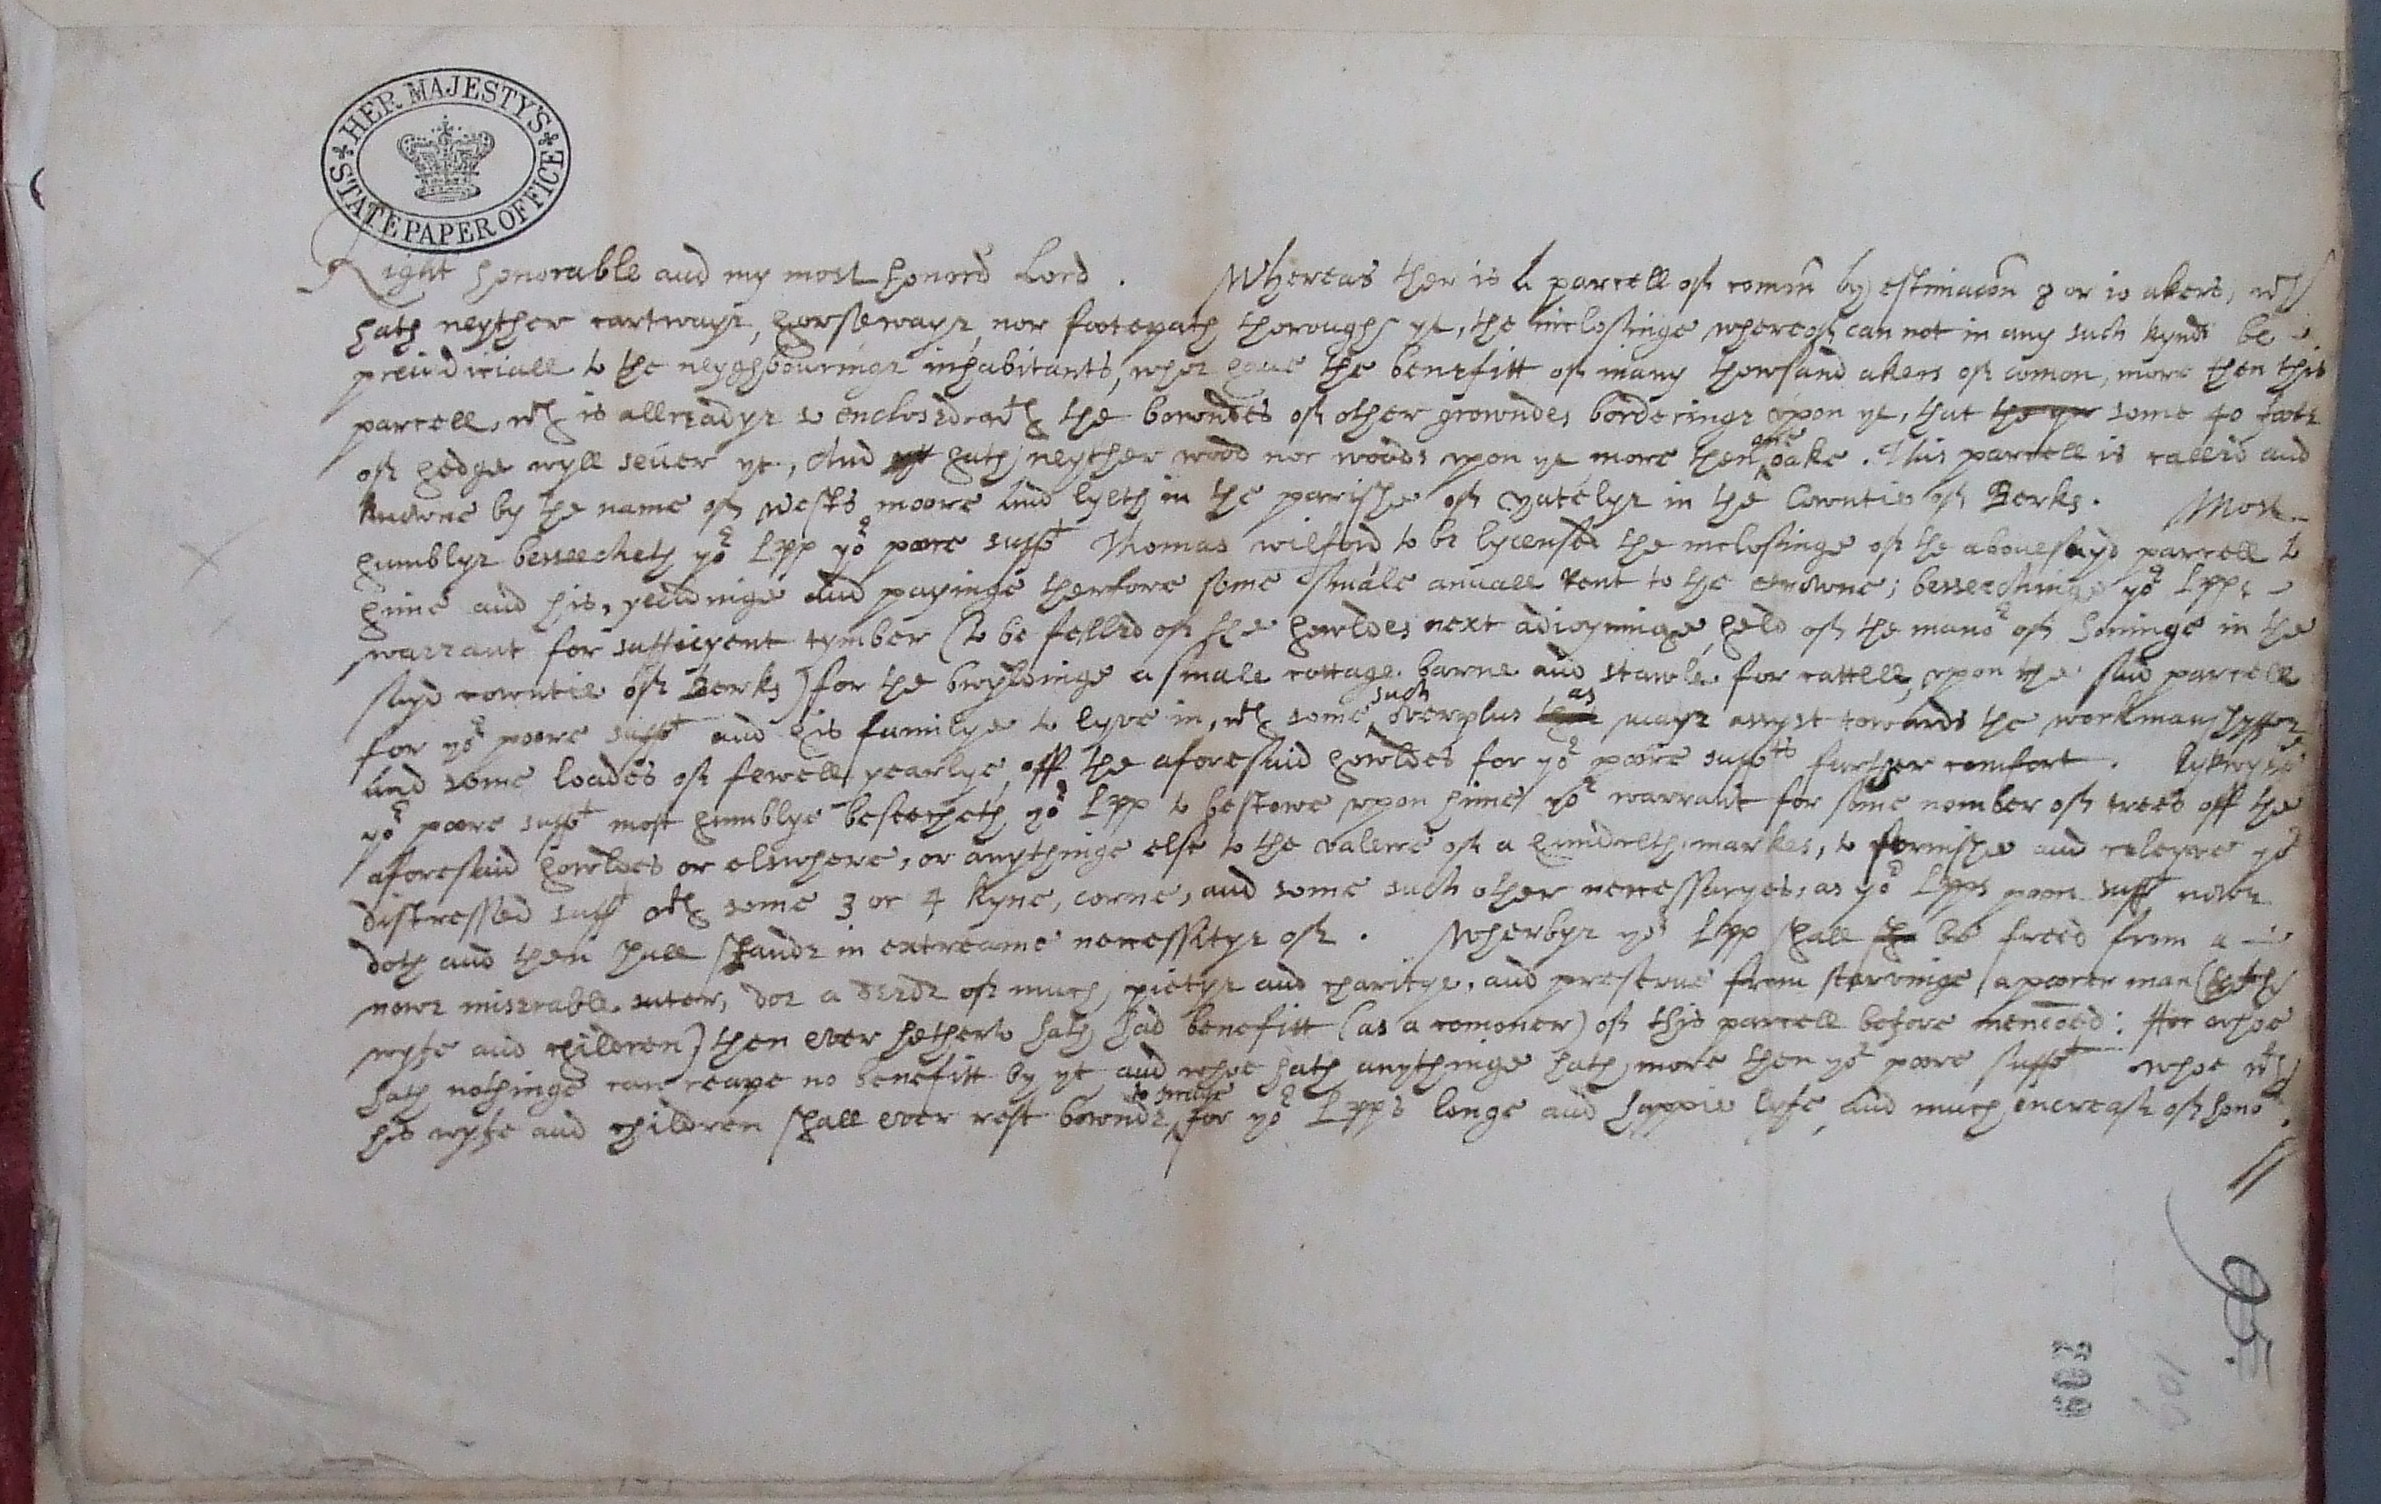 HER MAJESTY'S
STATE PAPER OFFICE
Right honorable and my most honord Lord . Whereas ther is a parcell off comon by estimacon 8 or 10 akers, wch
hath neyther cartwaye, horsewaye, nor footepath thoroughe yt, the inclosinge whereoff can not in any such kynde be
preiudiciall to the neyghbouringe inhabitants, whoe haue the benefitt off many thowsand akers off comon, more then this
parcell, wch is allreadye so enclosed wth the bowndes off other growndes borderinge upon yt, that some 40 foote
off hedge wyll seuer yt, And hath neyther wood nor woods upon yt more then one oake . This parcell is called and
knowne by the name off wests moore and lyeth in the parishe off yatelye in the Cowntie off Berks. Most
humblye beseecheth yor Lpp yor poore supt Thomas wilford to be lycensed the inclosinge off the abouesayd parcell to
hime and his, yeildinge and payinge therfore some smale anuall rent to the crowne; beseechinge yor Lpps
warrant for sufficyent tymber (to be felled off the howldes next adioyninge, held off the manor off Soninge in the
sayd cowntie off Berks) for the bwyldinge a smale cottage barne and stawle for cattell, upon the said parcell
for yor poore supt and his familye to lyve in, wth some such overplus as maye assyst towards the workmanshyppe
and some loades off fewell yearlye, off the aforesaid howldes for yor poore supts further comfort . Lykewyse
yor poore supt most humblye beseecheth yor Lpp to bestowe upon hime yor warrant for some nomber off trees off the
aforesaid howldes or elswhere, or anythinge else to the valewe off a hundreth markes, to fornishe and releyve yor
distressed supt wth some 3 or 4 kyne, corne, and some such other necessaryes, as yor Lpps poore supt nowe
doth and then shall stande in extreame necessitye off . Wherbye yor Lpp shall be freed from a
nowe miserable suter, doe a deede off much pietye and charitye, and preserue from starvinge a poorer man (wth
wyfe and children) then ever hetherto hath had benefitt (as a comoner) off this parcell before mencoed: For whoe
hath nothinge can reape no benefitt by yt and whoe hath anythinge hath more then yor poore supt whoe wth
his wyfe and children shall ever rest bownde to praye for yor Lpps longe and happie lyfe, and much encrease off honor.
209
109